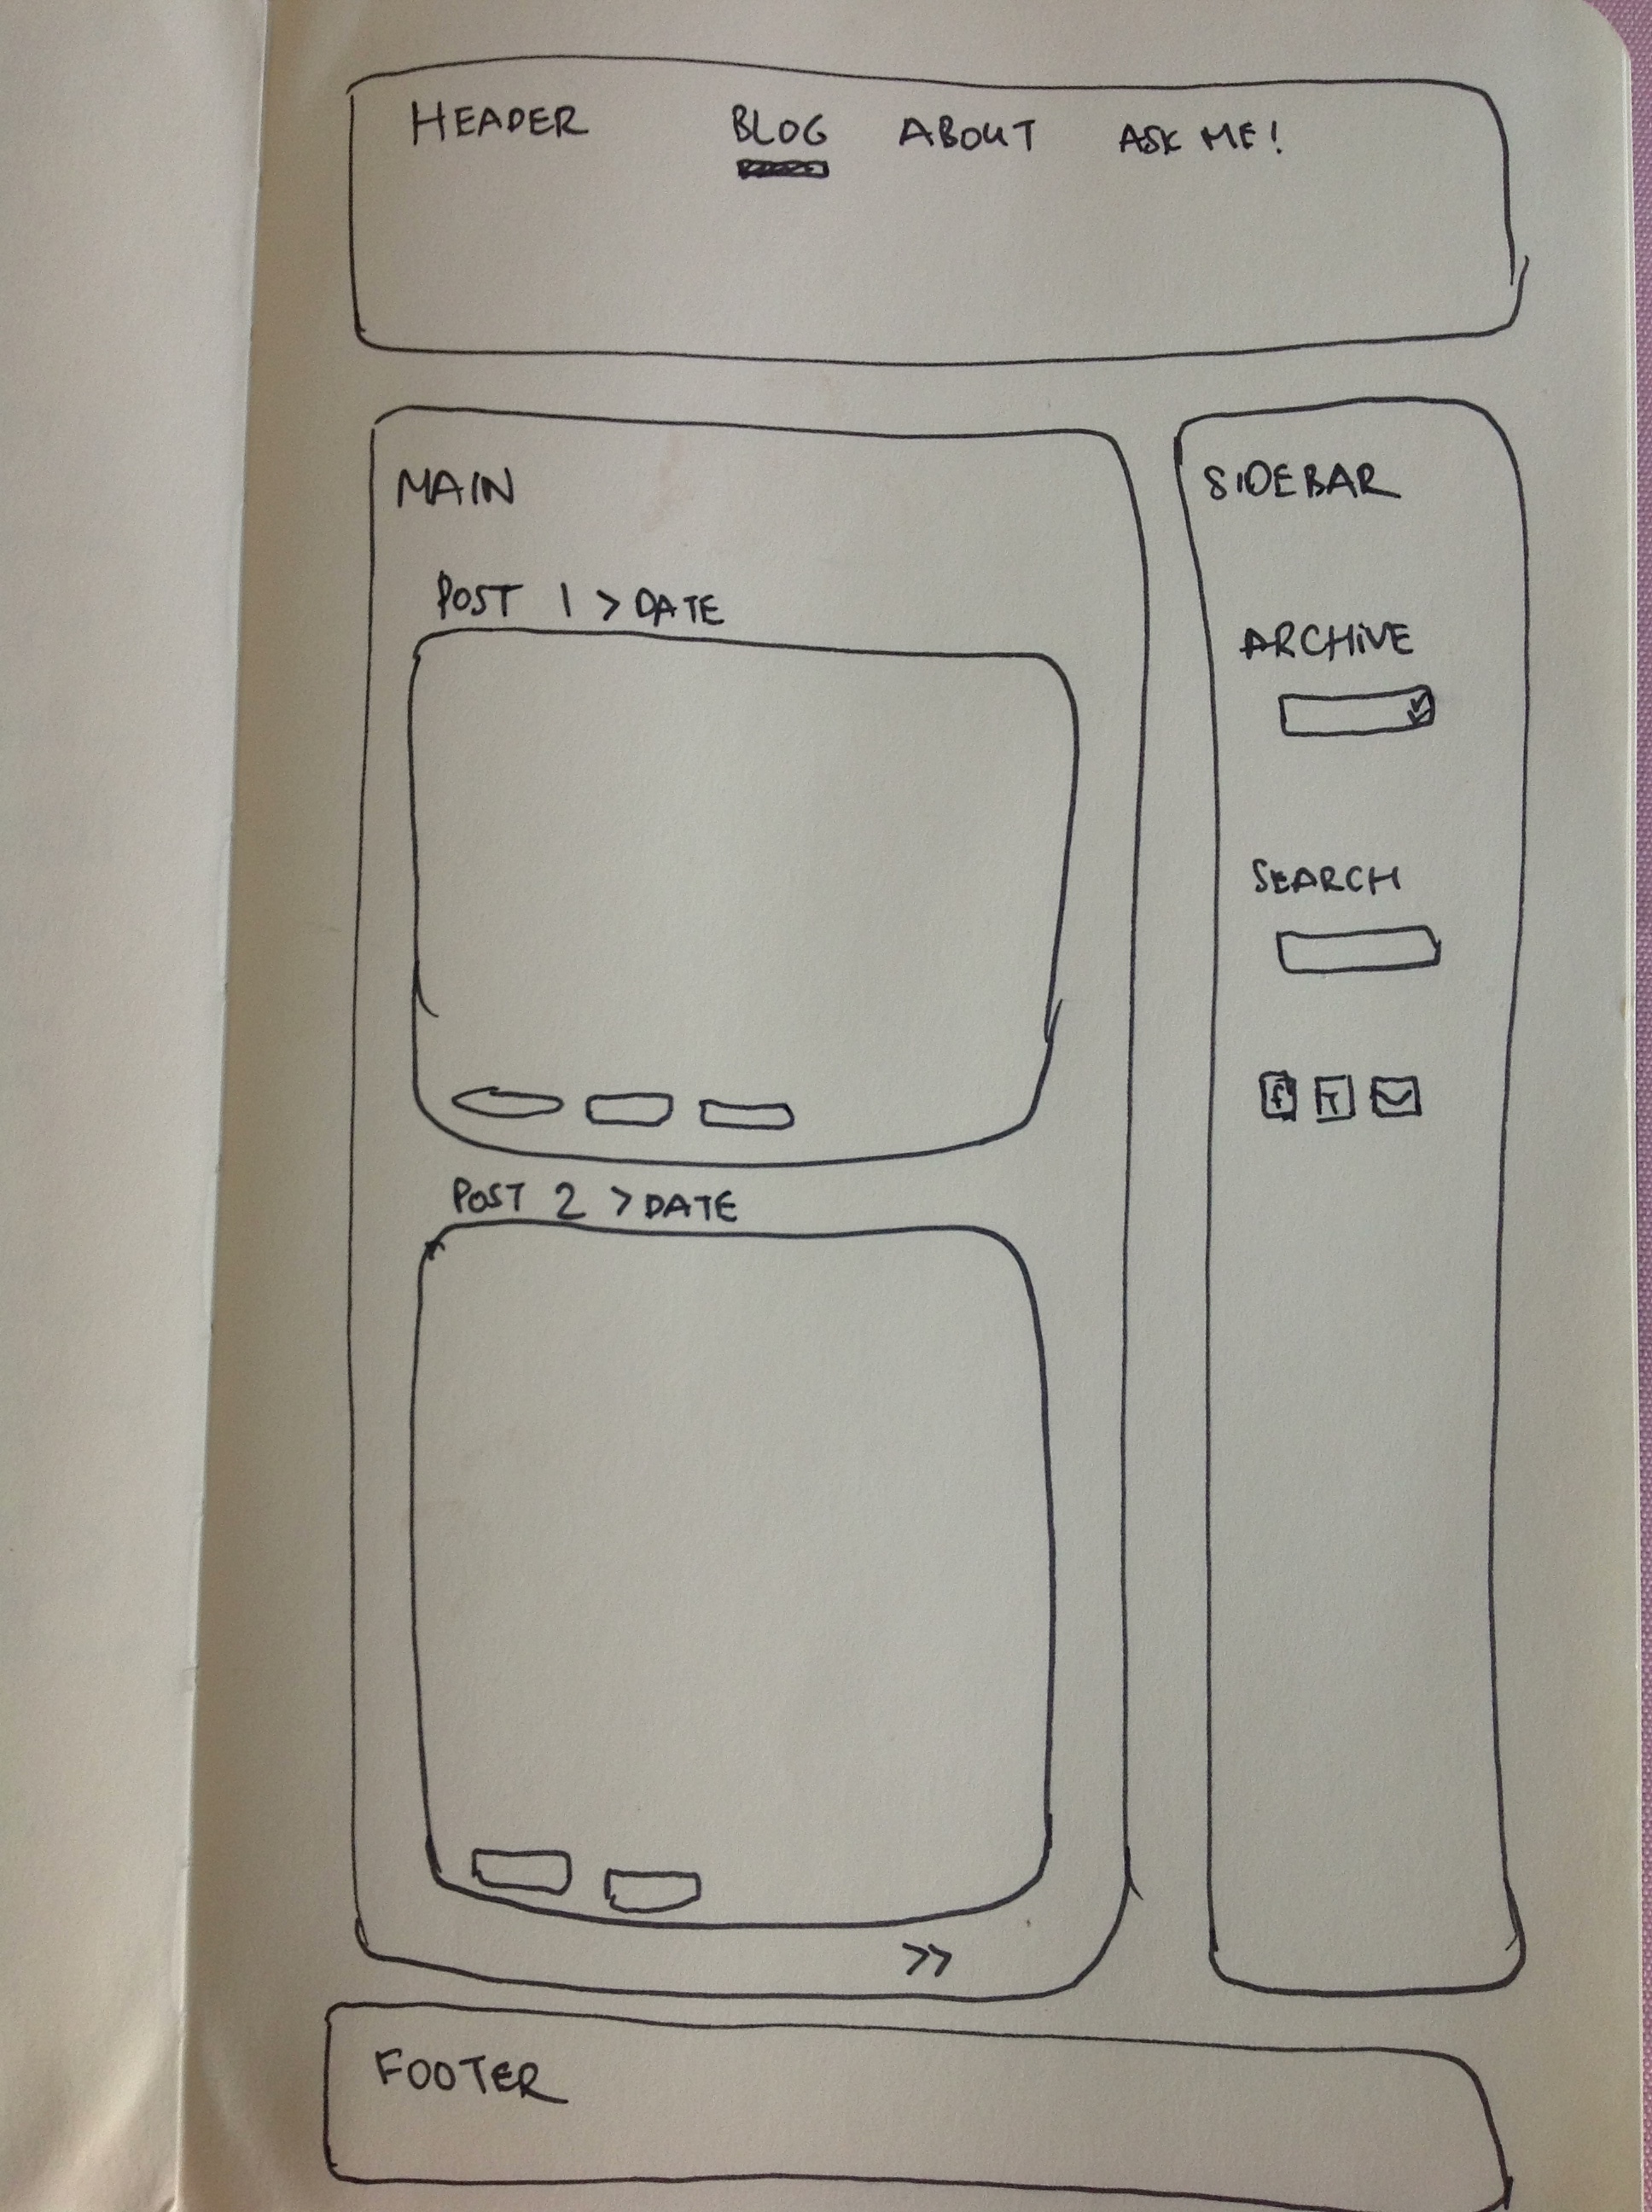 HEADER BLOG ABOUT ASK ME!
MAIN
POST 1 > DATE
POST 2 > DATE
>>
SIDEBAR
ARCHIVE
SEARCH
f T
FOOTER